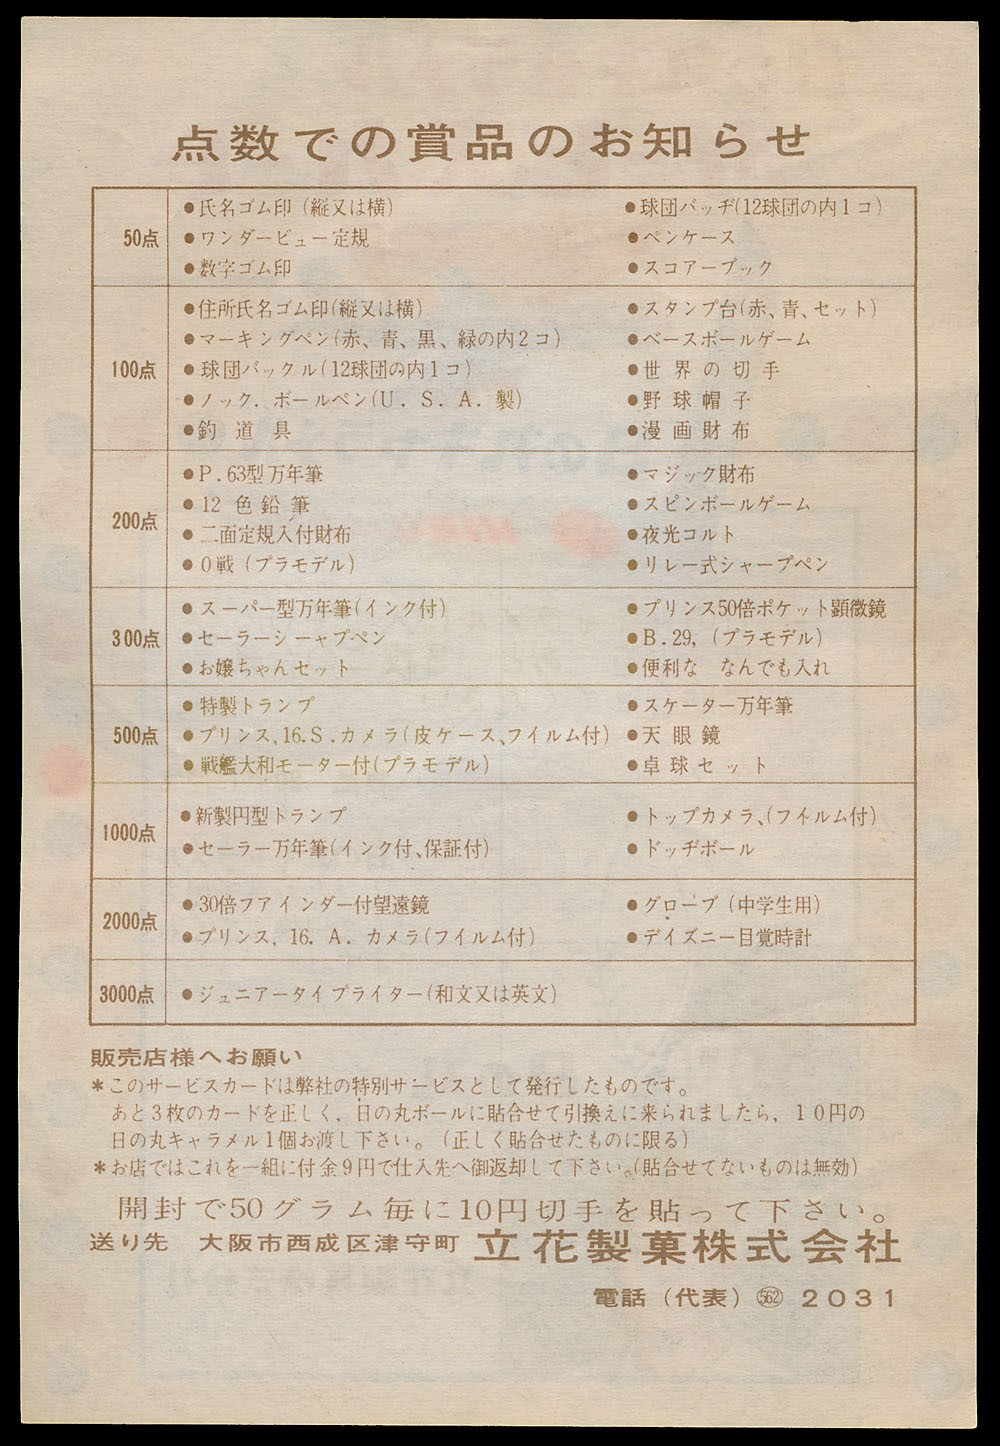 点数での賞品のお知らせ
50点
●氏名ゴム印（縦又は横）
●球団バッヂ(12球団の内1コ）
●ワンダービュー定規
●ペンケース
●数字ゴム印
●スコアーブック
100点
●住所氏名ゴム印(縦又は横）
●スタンプ台(赤、青、セット）
●マーキングペン(赤、青、黒、緑の内2コ）
●ベースボールゲーム
●球団バックル(12球団の内1コ）
●世界の切手
●ノック．ボールペン(U．S．A．製)
●野球帽子
●釣道具
●漫画財布
200点
●P.63型万年筆
●マジック財布
●12色鉛筆
●スピンボールゲーム
●二面定規入付財布
●夜光コルト
●0戦（プラモデル）
●リレー式シャープペン
300点
●スーパー型万年筆(インク付）
●プリンス50倍ポケット顕微鏡
●セーラーシーャプペン
●B.29,（プラモデル）
●お嬢ちゃんセット
●便利な　なんでも入れ
500点
●特製トランプ
●スケーター万年筆
●プリンス、16.S．カメラ(皮ケース、フイルム付）
●天眼鏡
●戦艦大和モーター付(プラモデル）
●卓球セット
1000点
●新製円型トランプ
●トップカメラ、(フイルム付）
●セーラー万年筆(インク付、保証付）
●ドッヂボール
2000点
●30倍フアインダー付望遠鏡
●グローブ（中学生用）
●プリンス，16．A．カメラ(フイルム付）
●デイズニー目覚時計
3000点
●ジュニアータイプライター(和文又は英文）
販売店様へお願い
＊このサービスカードは弊社の特別サービスとして発行したものです。
あと3枚のカードを正しく，日の丸ボールに貼合せて引換えに来られましたら，１０円の
日の丸キャラメル1個お渡し下さい。（正しく貼合せたものに限る）
＊お店ではこれを一組に付金9円で仕入先へ御返却して下さい。(貼合せてないものは無効）
開封で50グラム毎に10円切手を貼って下さい。
送り先　大阪市西成区津守町　立花製菓株式会社
電話（代表）(562) 2031